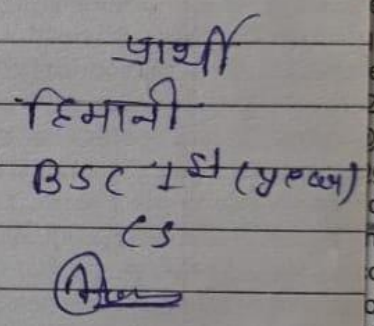 प्रार्थी
हिमानी
BSC 1st (year)
CS